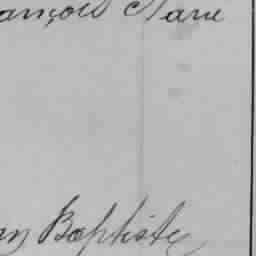 ançois Marie
an Baptiste